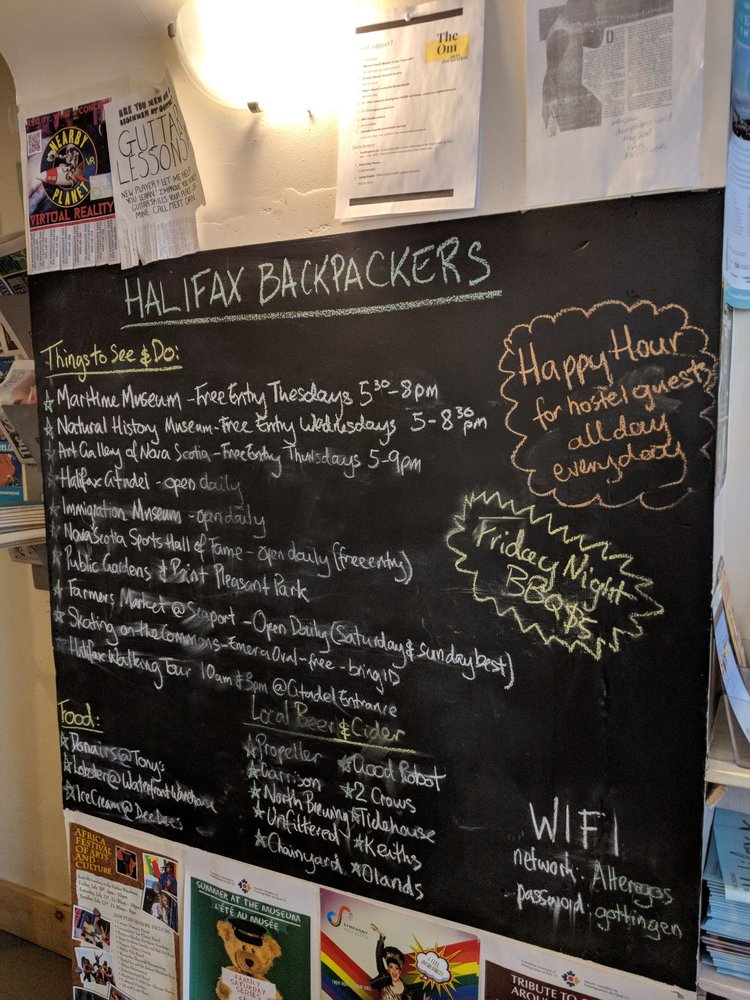 NEARBY
PLANET
VR
VIRTUAL REALITY
GUITAR
LESSONS
NEW PLAYER? LET ME HELP
YOU LEARN!
The
Om
HALIFAX BACKPACKERS
Things to See & Do:
☆ Maritime Museum - Free Entry Tuesdays 5³⁰-8pm
☆ Natural History Museum - Free Entry Wednesdays 5-8³⁰pm
☆ Art Gallery of Nova Scotia - Free Entry Thursdays 5-9pm
☆ Halifax Citadel - open daily
☆ Immigration Museum - open daily
☆ Nova Scotia Sports Hall of Fame - open daily (free entry)
☆ Public Gardens & Point Pleasant Park
☆ Farmers Market @ Seaport - Open Daily (Saturday & Sunday best)
☆ Skating on the Commons - Emera Oval - free - bring ID
☆ Halifax Walking Tour 10am & 3pm @ Citadel Entrance
Happy Hour
for hostel guests
all day
everyday
Friday Night
BBQ $5
Food:
☆ Donairs @ Tony's
☆ Lobster @ Waterfront Warehouse
☆ Ice Cream @ Dee Dee's
Local Beer & Cider
☆ Propeller
☆ Garrison
☆ North Brewing
☆ Unfiltered
☆ Chainyard
☆ Good Robot
☆ 2 Crows
☆ Tidehouse
☆ Keiths
☆ Olands
WIFI
network: Alteregos
password: gottingen
AFRICA
FESTIVAL
OF ARTS
AND
CULTURE
SUMMER AT THE MUSEUM
L'ÉTÉ AU MUSÉE
FAMILY
SATURDAY
SERIES
SYMPHONY
TRIBUTE TO